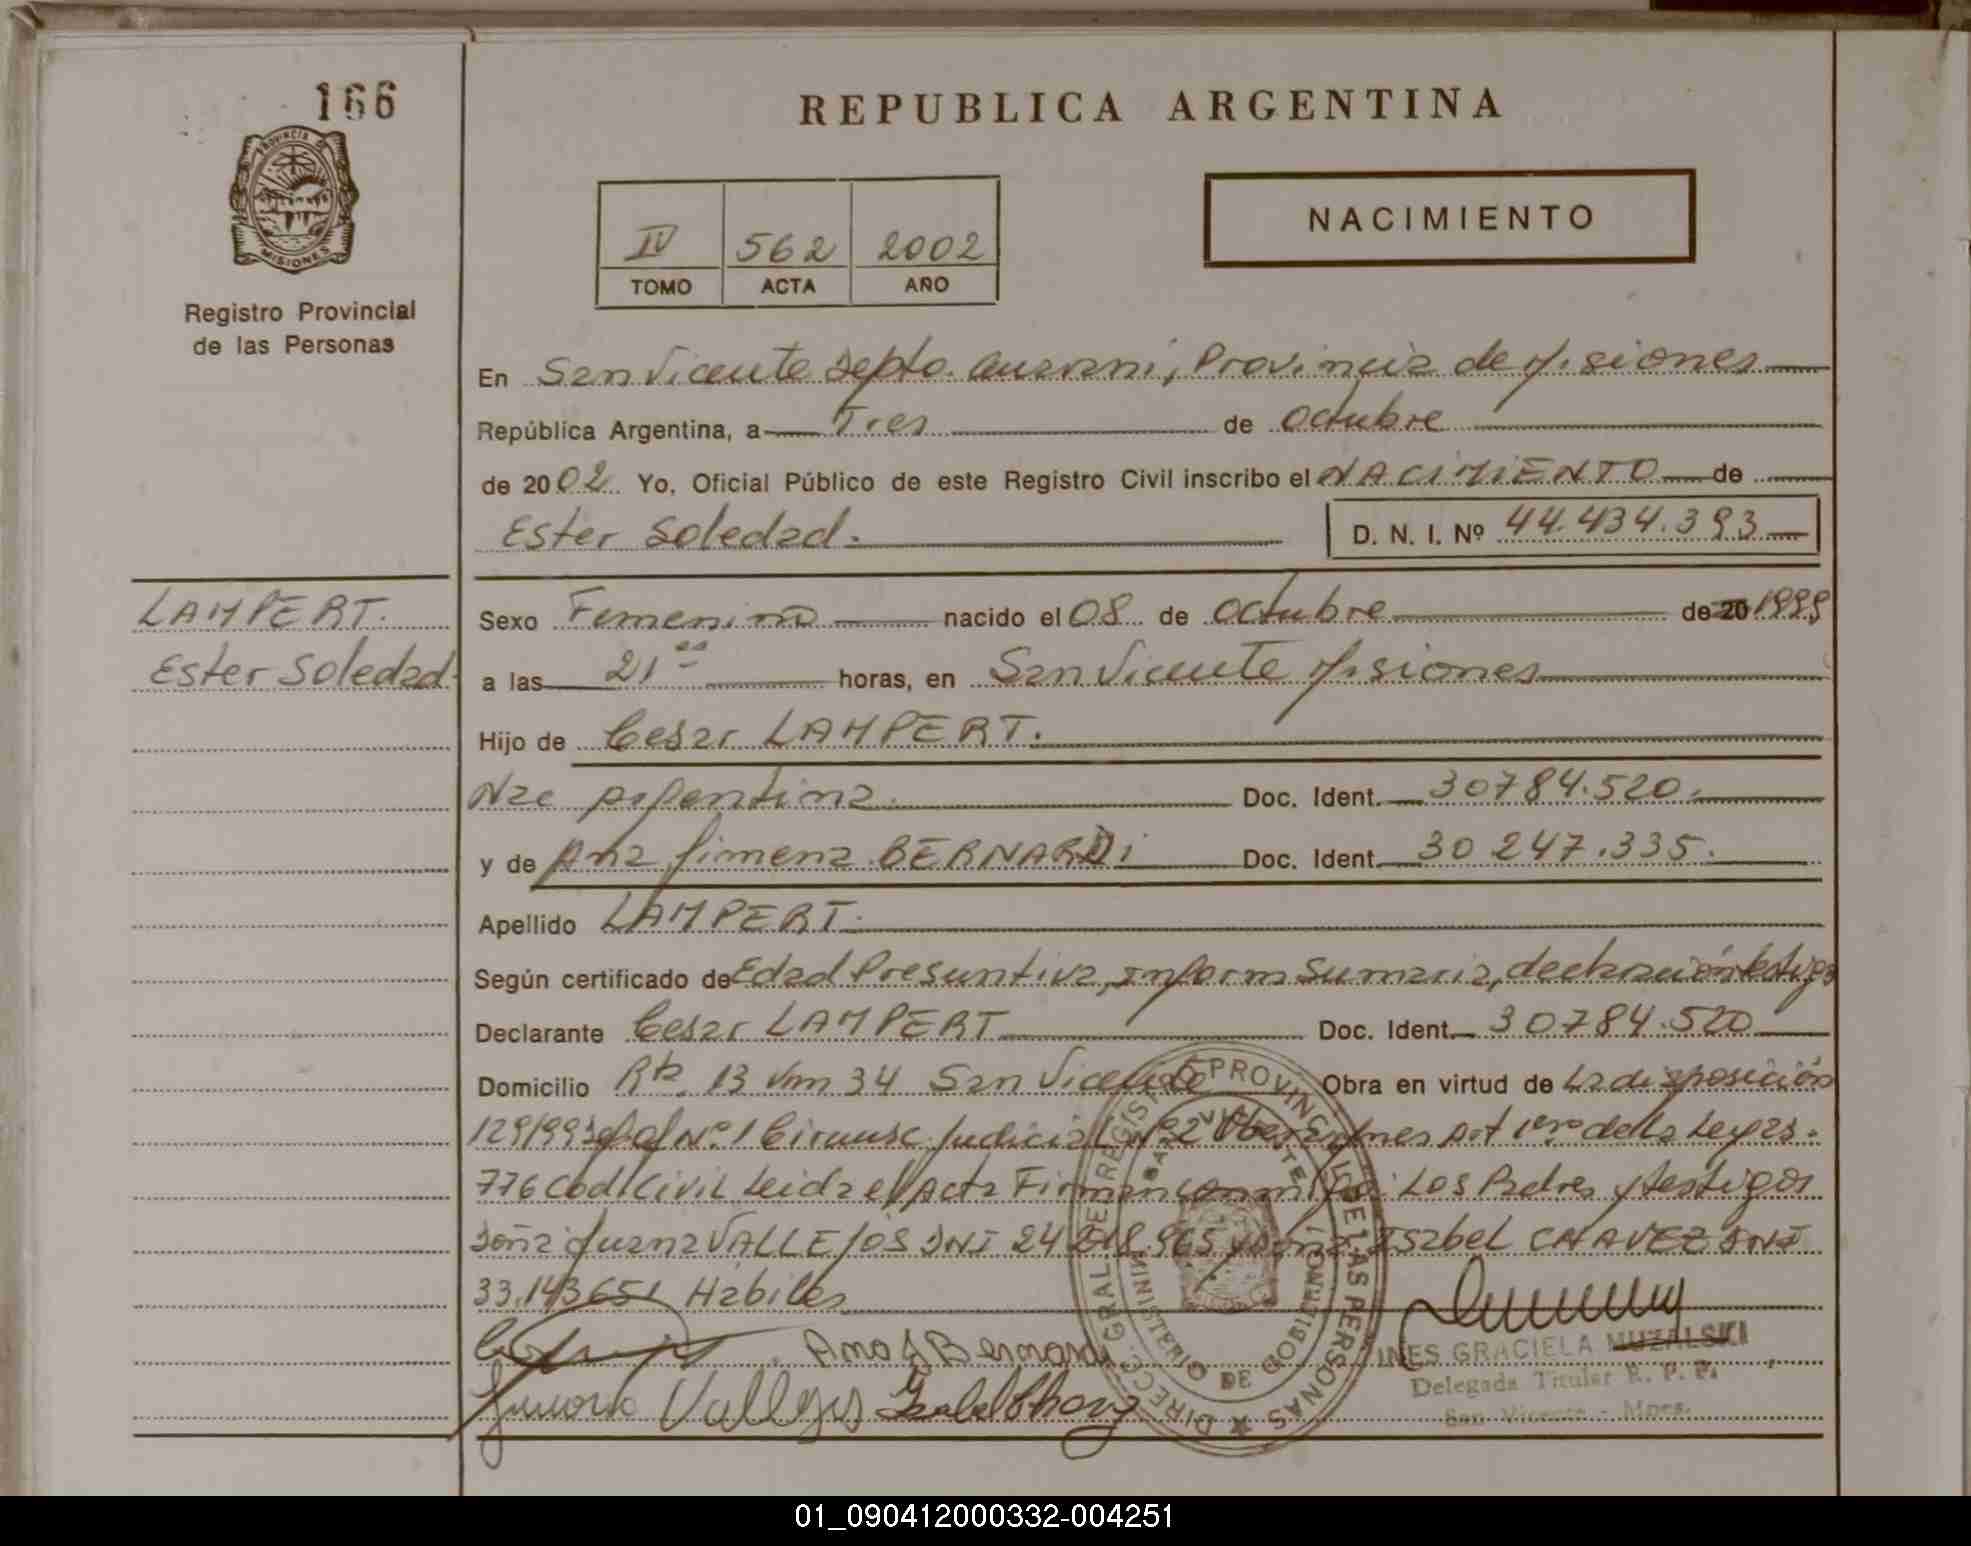 166
REPUBLICA ARGENTINA
PROVINCIA DE MISIONES
Registro Provincial
de las Personas
IV 562 2002
TOMO ACTA AÑO
NACIMIENTO
En San Vicente Depto. Guarani, Provincia de Misiones
República Argentina, a Tres de Octubre
de 2002 Yo, Oficial Público de este Registro Civil inscribo el NACIMIENTO de
Ester Soledad. D. N. I. Nº 44.434.393
LAMPERT.
Ester Soledad.
Sexo Femenino nacido el 08 de octubre de 20 1999
a las 21 horas, en San Vicente Misiones
Hijo de Cesar LAMPERT.
Nac Argentina. Doc. Ident. 30784.520.
y de Ana Jimena BERNARDi Doc. Ident. 30 247.335.
Apellido LAMPERT.
Según certificado de Edad Presuntiva, inform Sumaria, declaración testigo
Declarante Cesar LAMPERT Doc. Ident. 30784.520
Domicilio Rta. 13 Km 34 San Vicente Obra en virtud de La disposición
129/99 Nº 1 Circunsc. Judicial Nº 2 Obera Mnes Art 1ero de la Ley 25.
776 Cod Civil Leida el Acta Firman conmigo: Los Padres y testigos
Doña Juana VALLEJOS DNI 24 218.965 y Doña Isabel CHAVEZ DNI
33.143651 Habiles
Ana J Bernardi
Juana Vallejos Isabel Chavez
DIRECC. GRAL. DE REGISTRO PROVINCIAL DE LAS PERSONAS
SAN VICENTE
MINISTERIO DE GOBIERNO
INES GRACIELA MUZALSKI
Delegada Titular R. P. P.
San Vicente - Mnes.
01_090412000332-004251